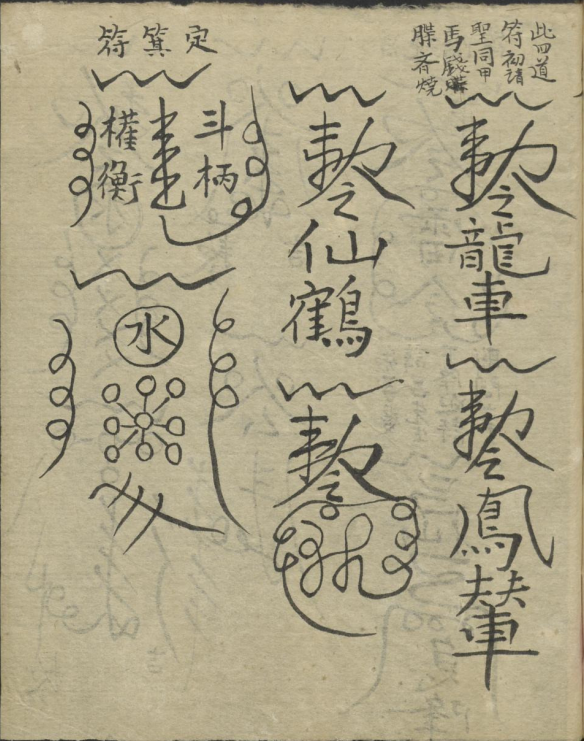 此四道
符初請
聖同甲
馬錢
牒斉燒
敕令龍車
敕令鳳輦
敕令仙鶴
敕令
定箕符
斗柄
權衡
水